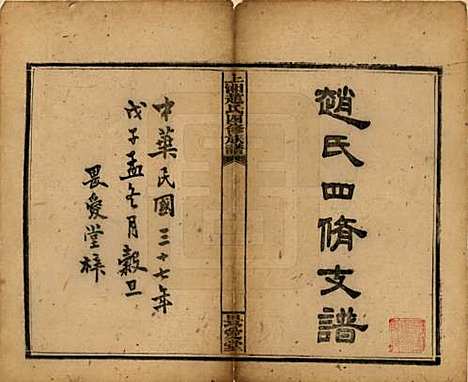 趙氏四脩支譜
上湘趙氏四修族譜
中華民國三十七年
戊子孟冬月穀旦
畏愛堂梓